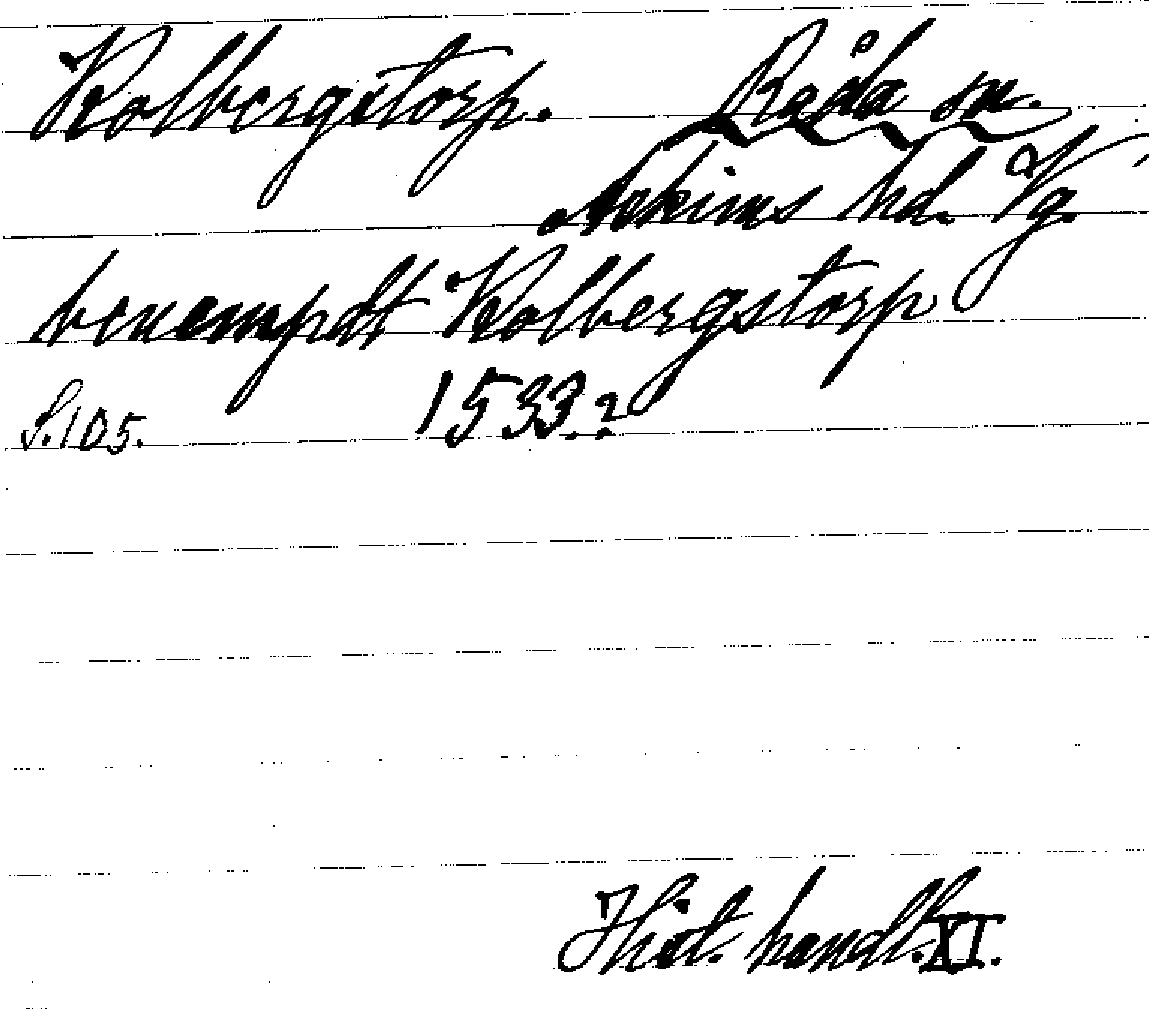 Kolbergstorp. Råda sn.
Askims hd. Vg.
benempdt Kolbergstorp
S.105. 1533.?
Hist. handl. XI.